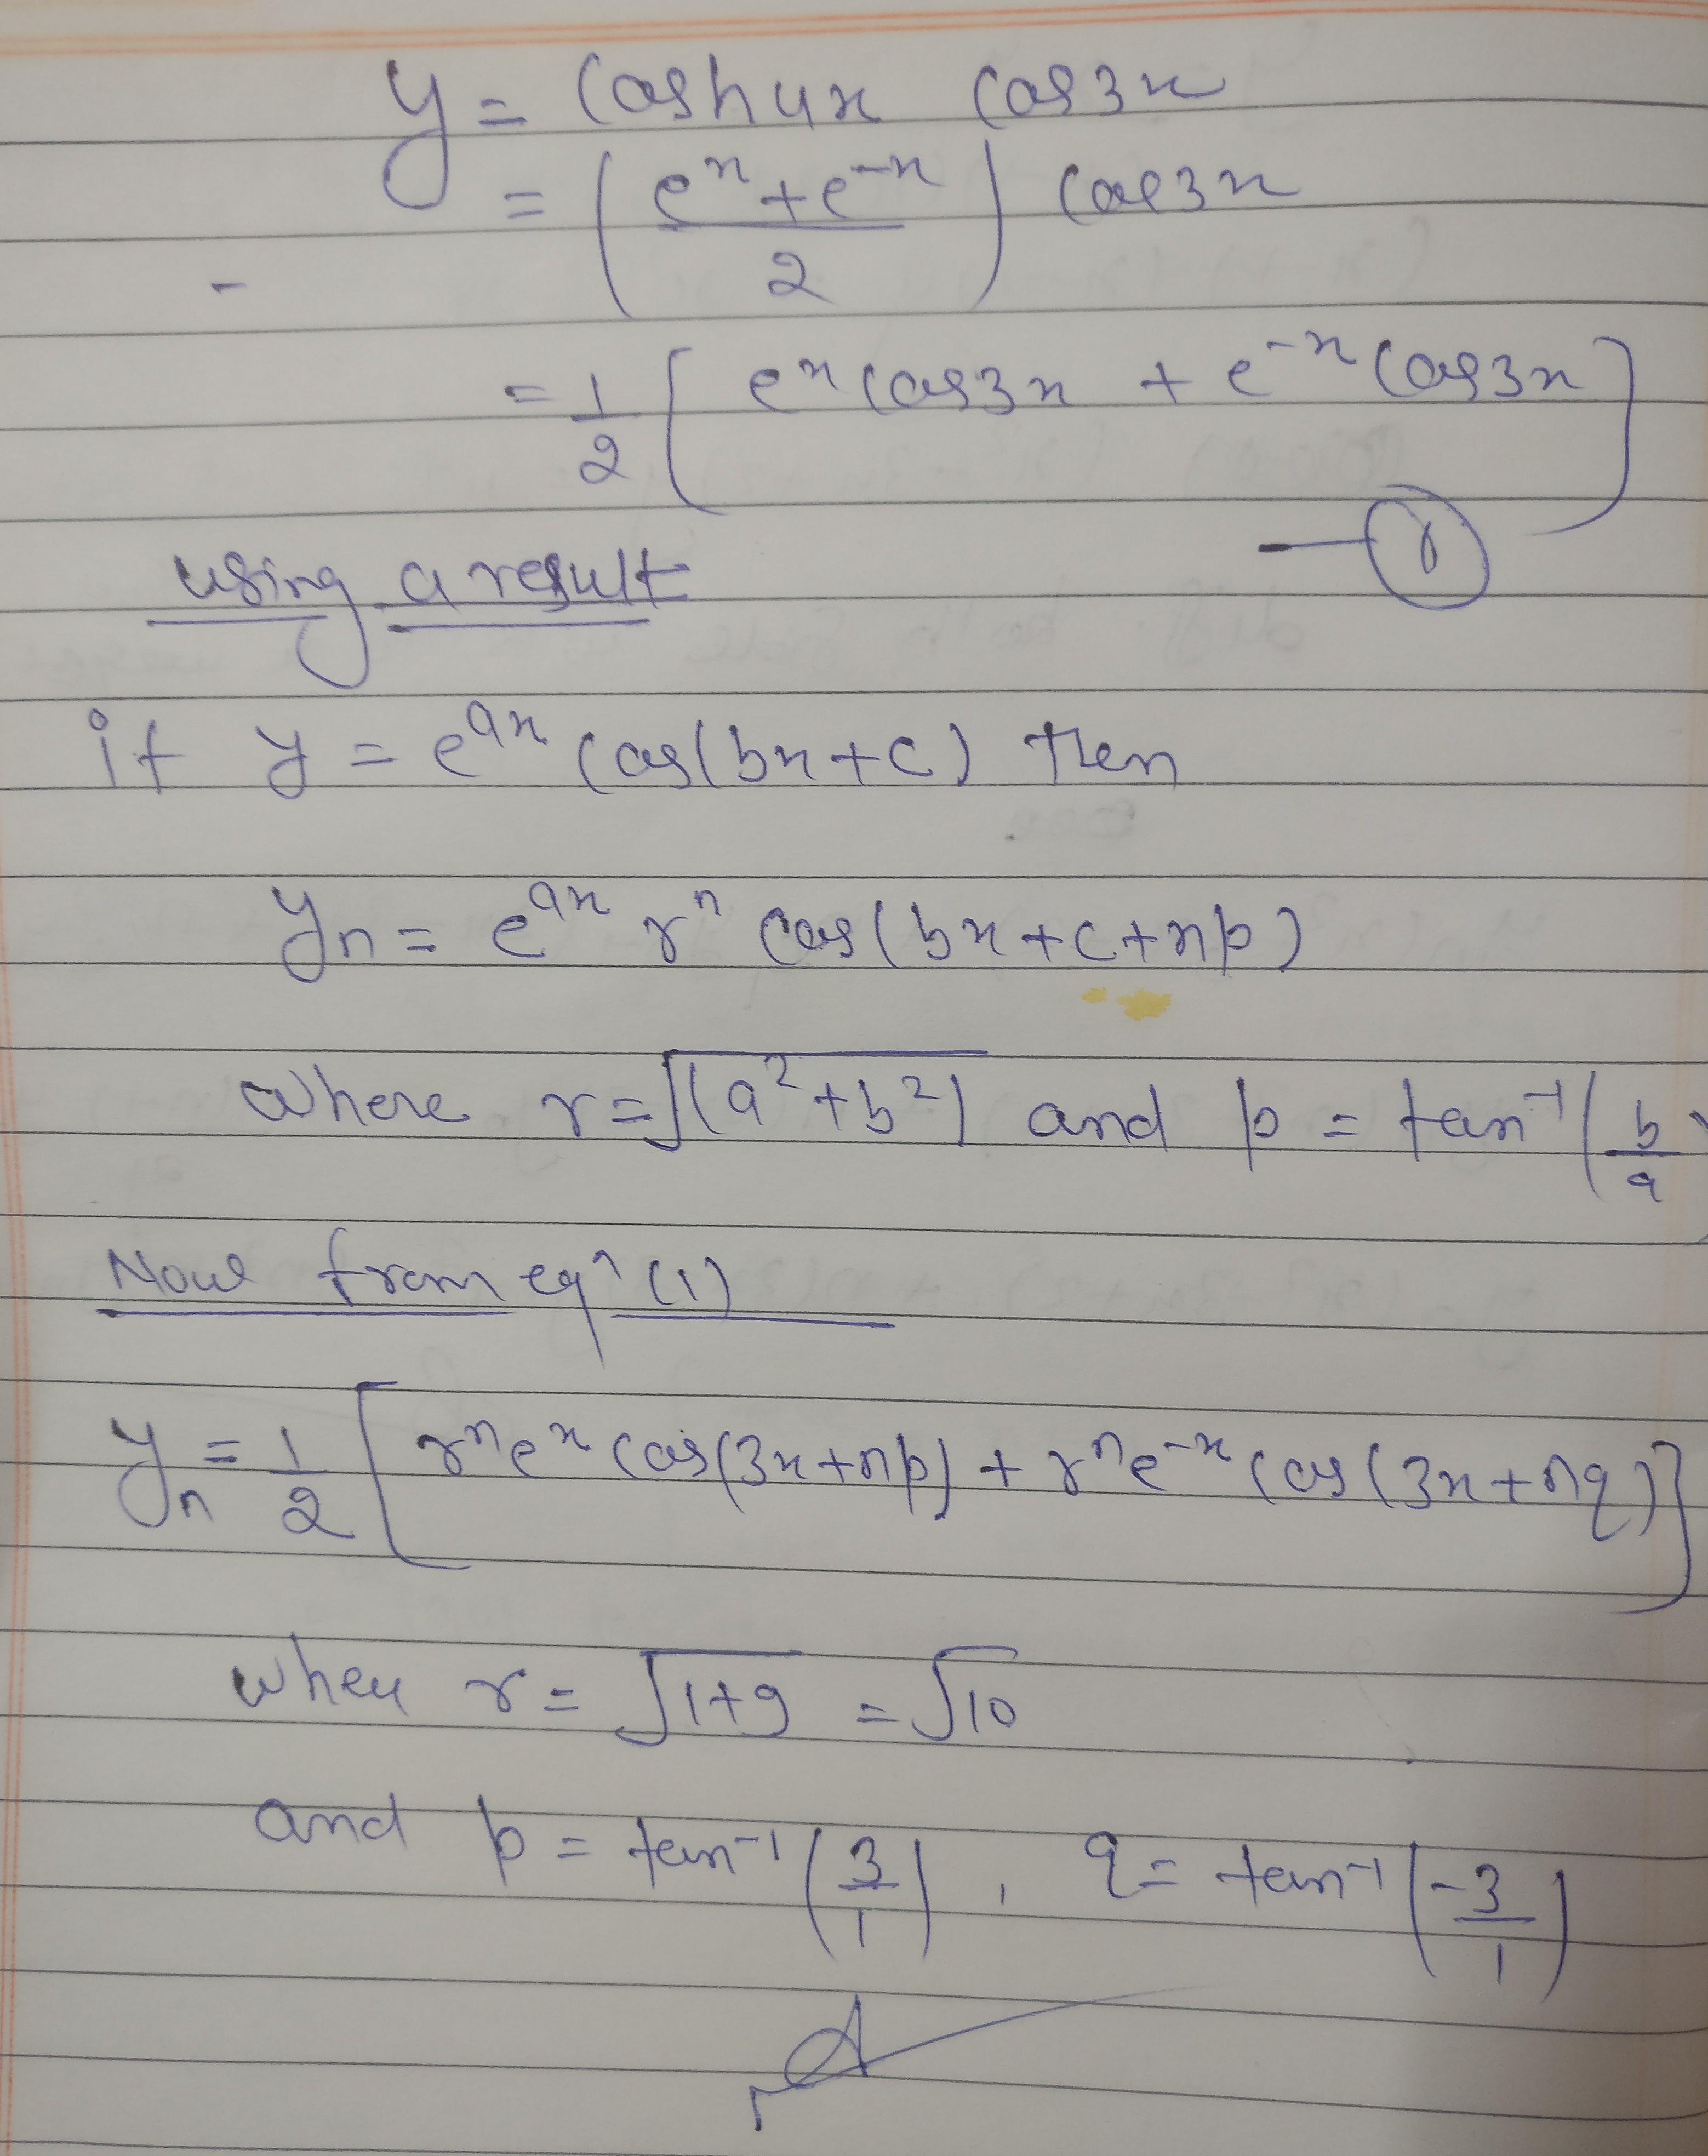 y = cosh4x cos3x
= (e^x + e^-x / 2) cos3x
= 1/2 [e^x cos3x + e^-x cos3x]
— (1)
using a result
if y = e^ax cos(bx+c) then
yn = e^ax r^n cos(bx+c+np)
where r = √(a²+b²) and p = tan⁻¹(b/a)
Now from eqn (1)
yn = 1/2 [r^n e^x cos(3x+np) + r^n e^-x cos(3x+nq)]
when r = √1+9 = √10
and p = tan⁻¹(3/1), q = tan⁻¹(-3/1)